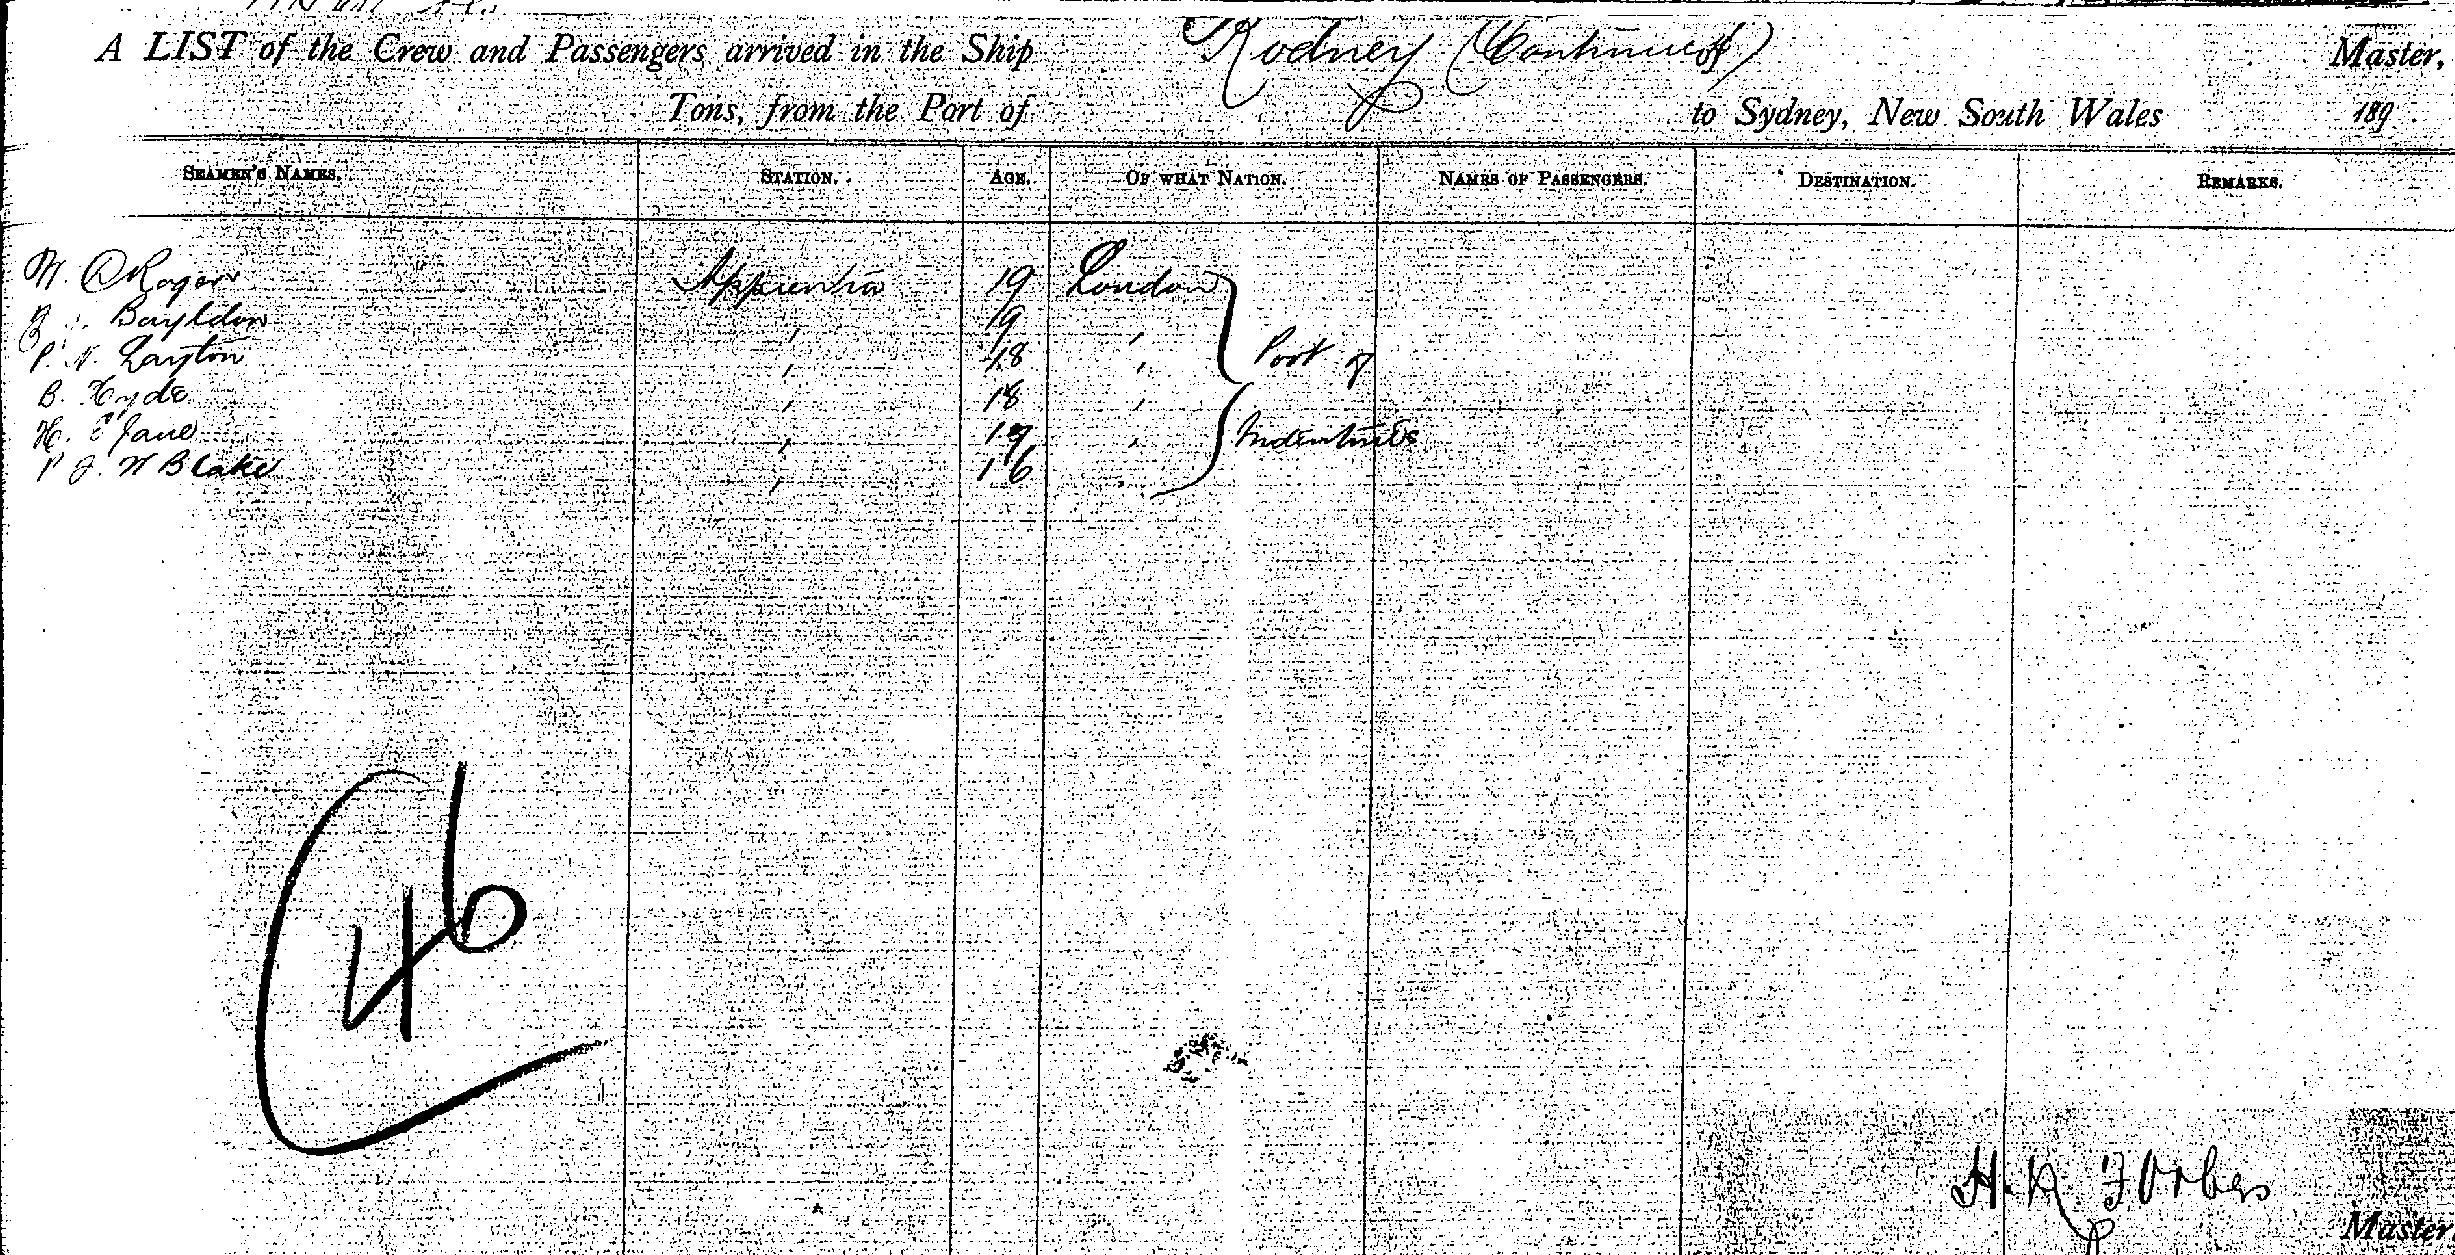 A LIST of the Crew and Passengers arrived in the Ship Rodney (Continued) Master,
Tons, from the Port of to Sydney, New South Wales 189
SEAMEN'S NAMES. STATION. AGE. OF WHAT NATION. NAMES OF PASSENGERS. DESTINATION. REMARKS.
W. O Roger Apprentice 19 London
Bayldon , 19 ,
P. N. Layton , 18 , Port of
B. Hyde , 18 ,
H. E Jane , 19 , Indentures
P J. W Blake , 16
46
H. R. Forbes
Master